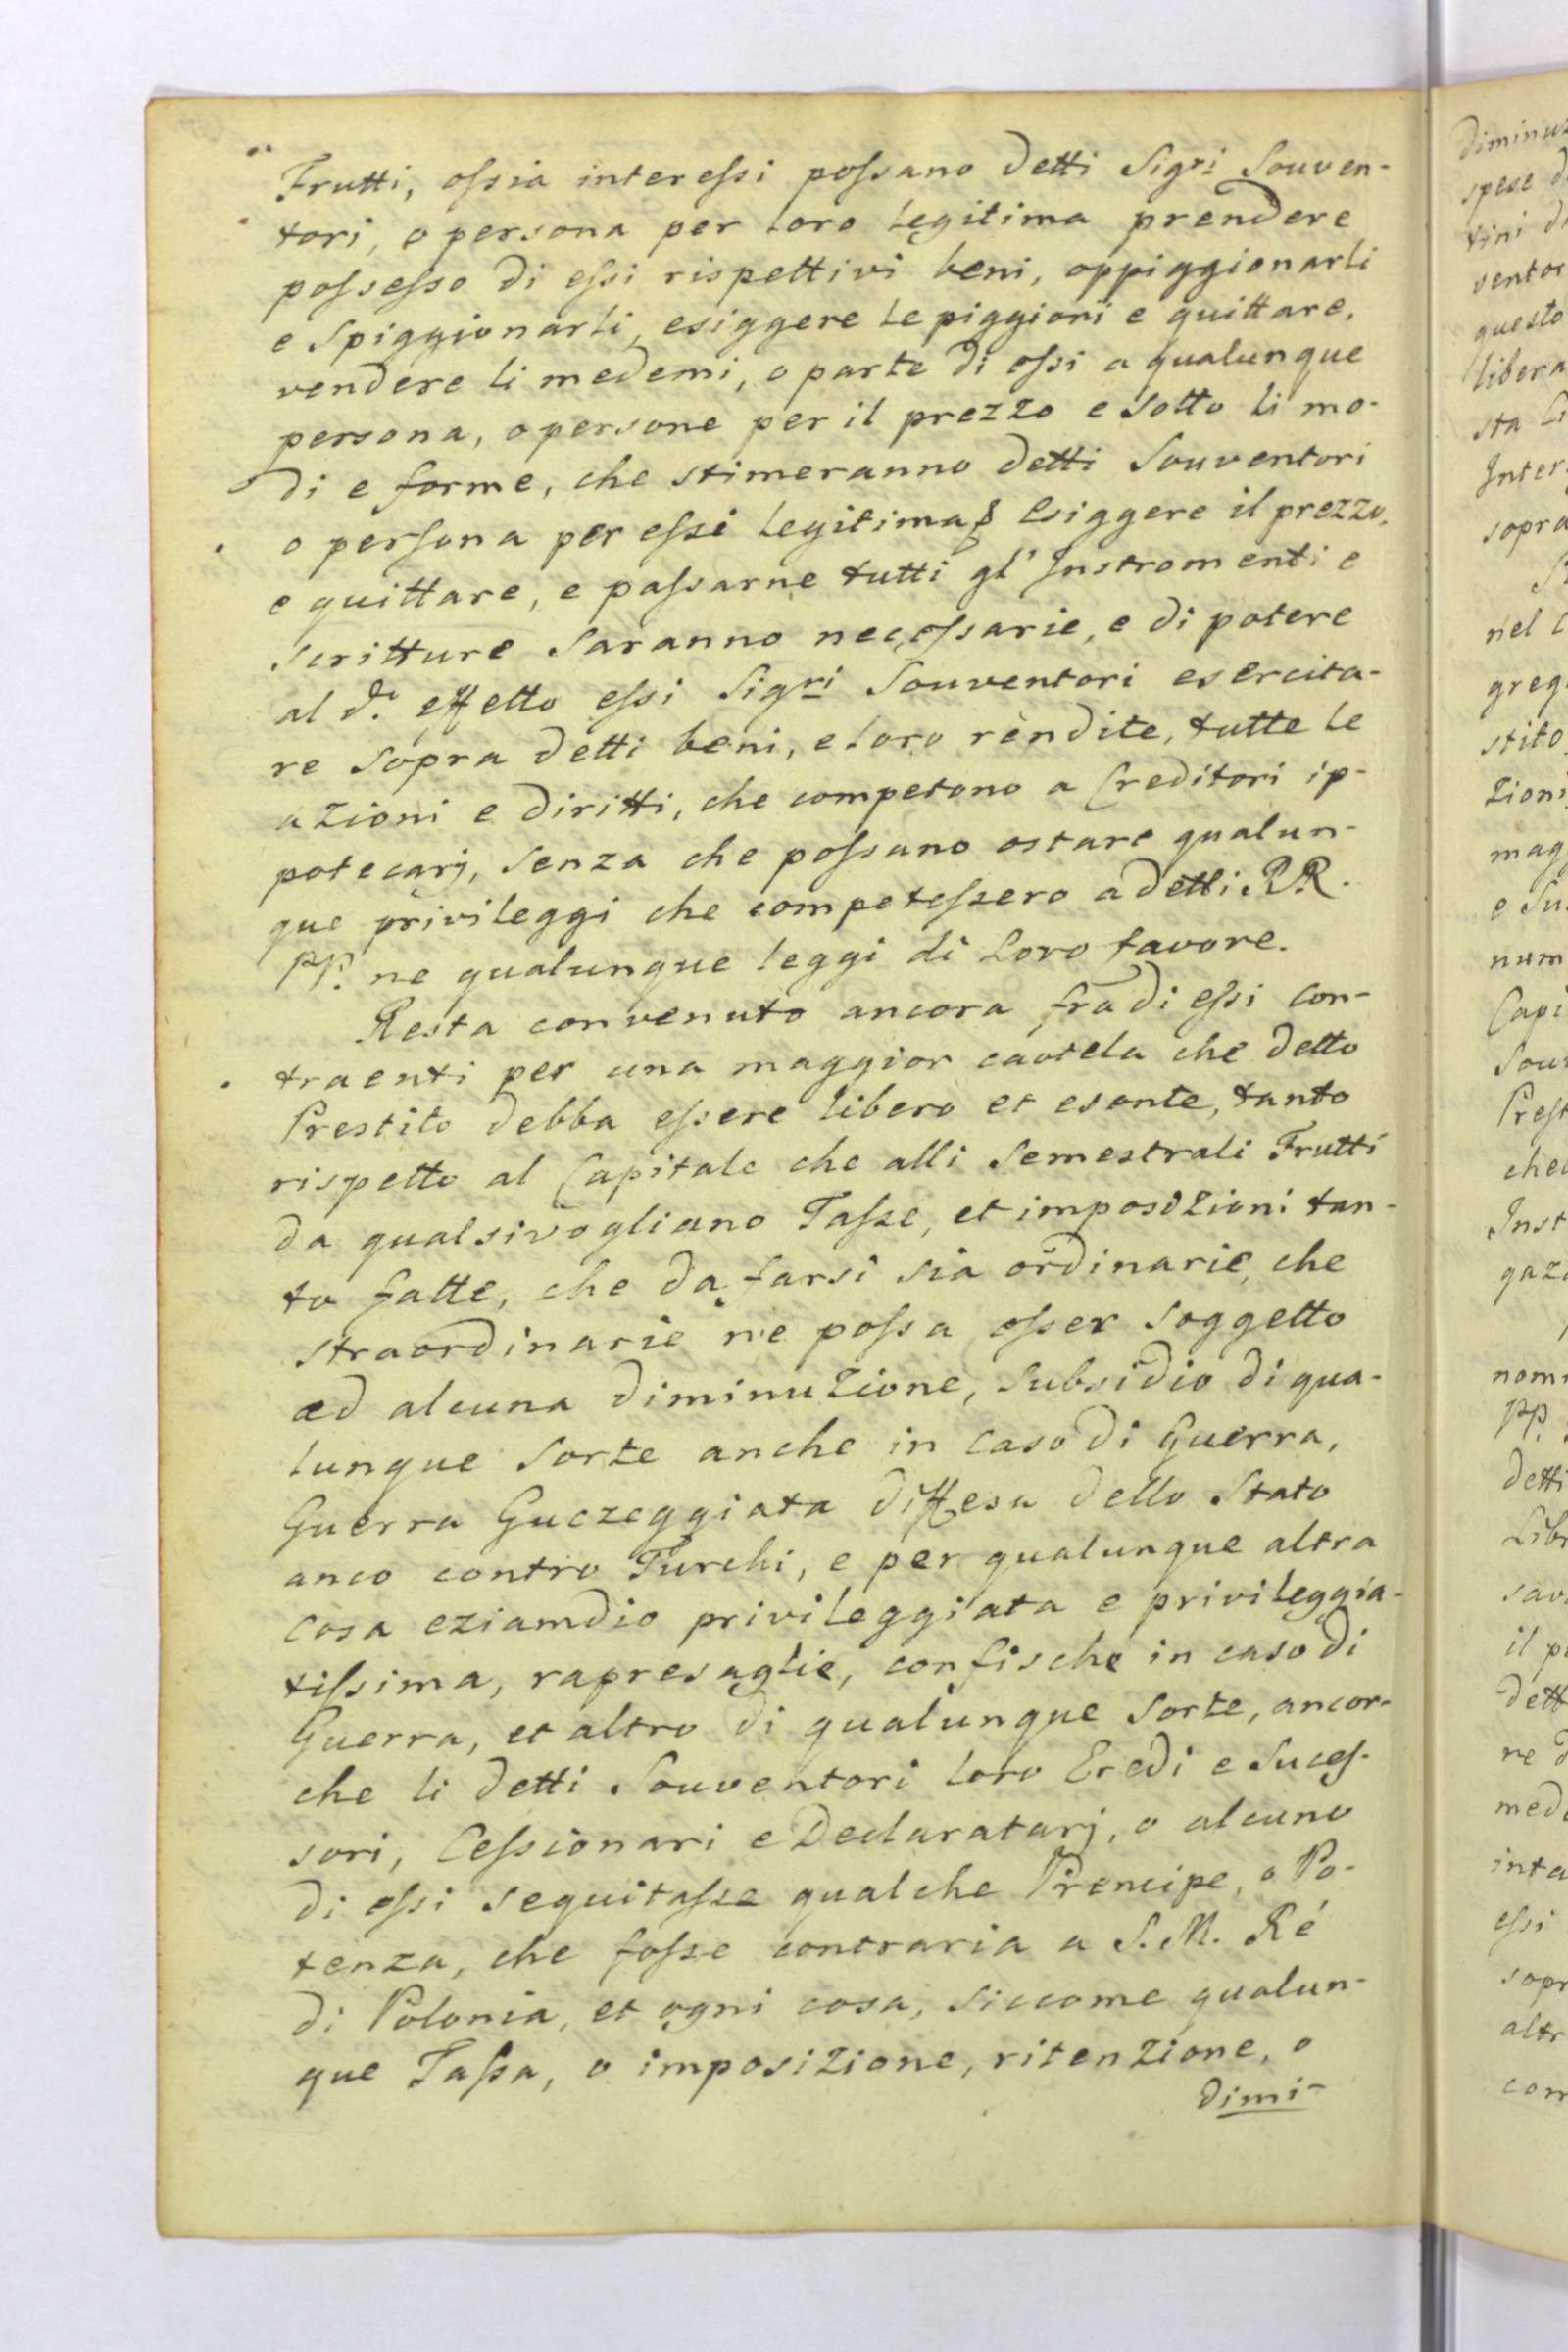 Frutti, ossia interessi possano detti Sigri Souven-
tori, o persona per loro legitima prendere
possesso di essi rispettivi beni, oppiggionarli
e spiggionarli, esiggere le piggioni e quittare,
vendere li medemi, o parte di essi a qualunque
persona, o persone per il prezzo e sotto li mo-
di e forme, che stimeranno detti Souventori
o persona per essi legitima, esiggere il prezzo,
e quittare, e passarne tutti gl' Instromenti e
scritture saranno necessarie, e di potere
al do. effetto essi Sigri Souventori esercita-
re sopra detti beni, e loro rendite, tutte le
azioni e diritti, che competono a Creditori ip-
potecarj, senza che possano ostare qualun-
que privileggi che competessero a detti RR.
PP. ne qualunque leggi di loro favore.
Resta convenuto ancora fra di essi con-
traenti per una maggior cautela che detto
Prestito debba essere libero et esente, tanto
rispetto al Capitale che alli Semestrali Frutti
da qualsivogliano Tasse, et imposizioni tan-
to fatte, che da farsi sia ordinarie, che
straordinarie ne possa esser soggetto
ad alcuna diminuzione, subsidio di qua-
lunque sorte anche in caso di Guerra,
Guerra Guezeggiata diffesa dello Stato
anco contro Turchi, e per qualunque altra
cosa eziamdio privileggiata e privileggia-
tissima, rapresaglie, confische in caso di
Guerra, et altro di qualunque sorte, ancor-
che li detti Souventori loro Eredi e Suces-
sori, Cessionari e Declaratarj, o alcuno
di essi seguitasse qualche Prencipe, o Po-
tenza, che fosse contraria a S. M. Ré
di Polonia, et ogni cosa, siccome qualun-
que Tassa, o imposizione, ritenzione, o
dimi-